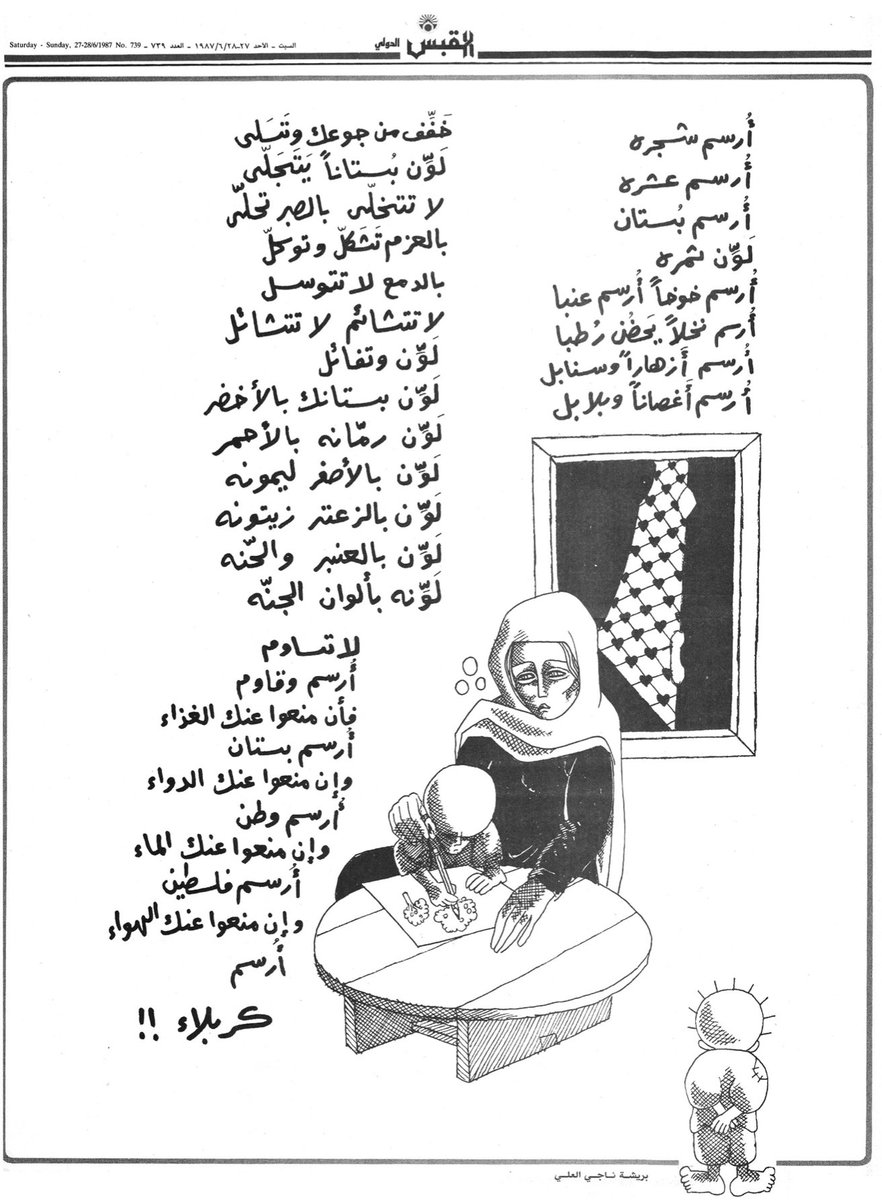 Saturday - Sunday, 27-28/6/1987 No. 739 - السبت - الأحد ٢٧-٢٨/٦/١٩٨٧ - العدد ٧٣٩
القبس الدولي
أُرسم شجره
أُرسم عشره
أُرسم بُستان
لَوِّن ثمره
أُرسم خوخاً أُرسم عنبا
أُرسم نخلاً يَحضُن رُطبا
أُرسم أَزهاراً وسنابل
أُرسم أَغصاناً وبلابل
خَفِّف من جوعك وتَسَلى
لَوِّن بُستاناً يَتَجَلّى
لا تتخلّى بالصبر تحلّى
بالعزم تَشَكلّ وتوكلّ
بالدمع لا تتوسل
لا تتشائم لا تتشائل
لَوِّن وتفائل
لَوِّن بستانك بالأخضر
لَوِّن رمّانه بالأحمر
لَوِّن بالأصفر ليمونه
لَوِّن بالزعتر زيتونه
لَوِّن بالعنبر والحّنه
لَوِّنه بألوان الجنّه
لا تساوم
أُرسم وقاوم
فأن منعوا عنك الغذاء
أُرسم بستان
وإن منعوا عنك الدواء
أُرسم وطن
وإن منعوا عنك الماء
أُرسم فلسطين
وإن منعوا عنك الهواء
أُرسم
كربلاء !!
بريشة ناجي العلي